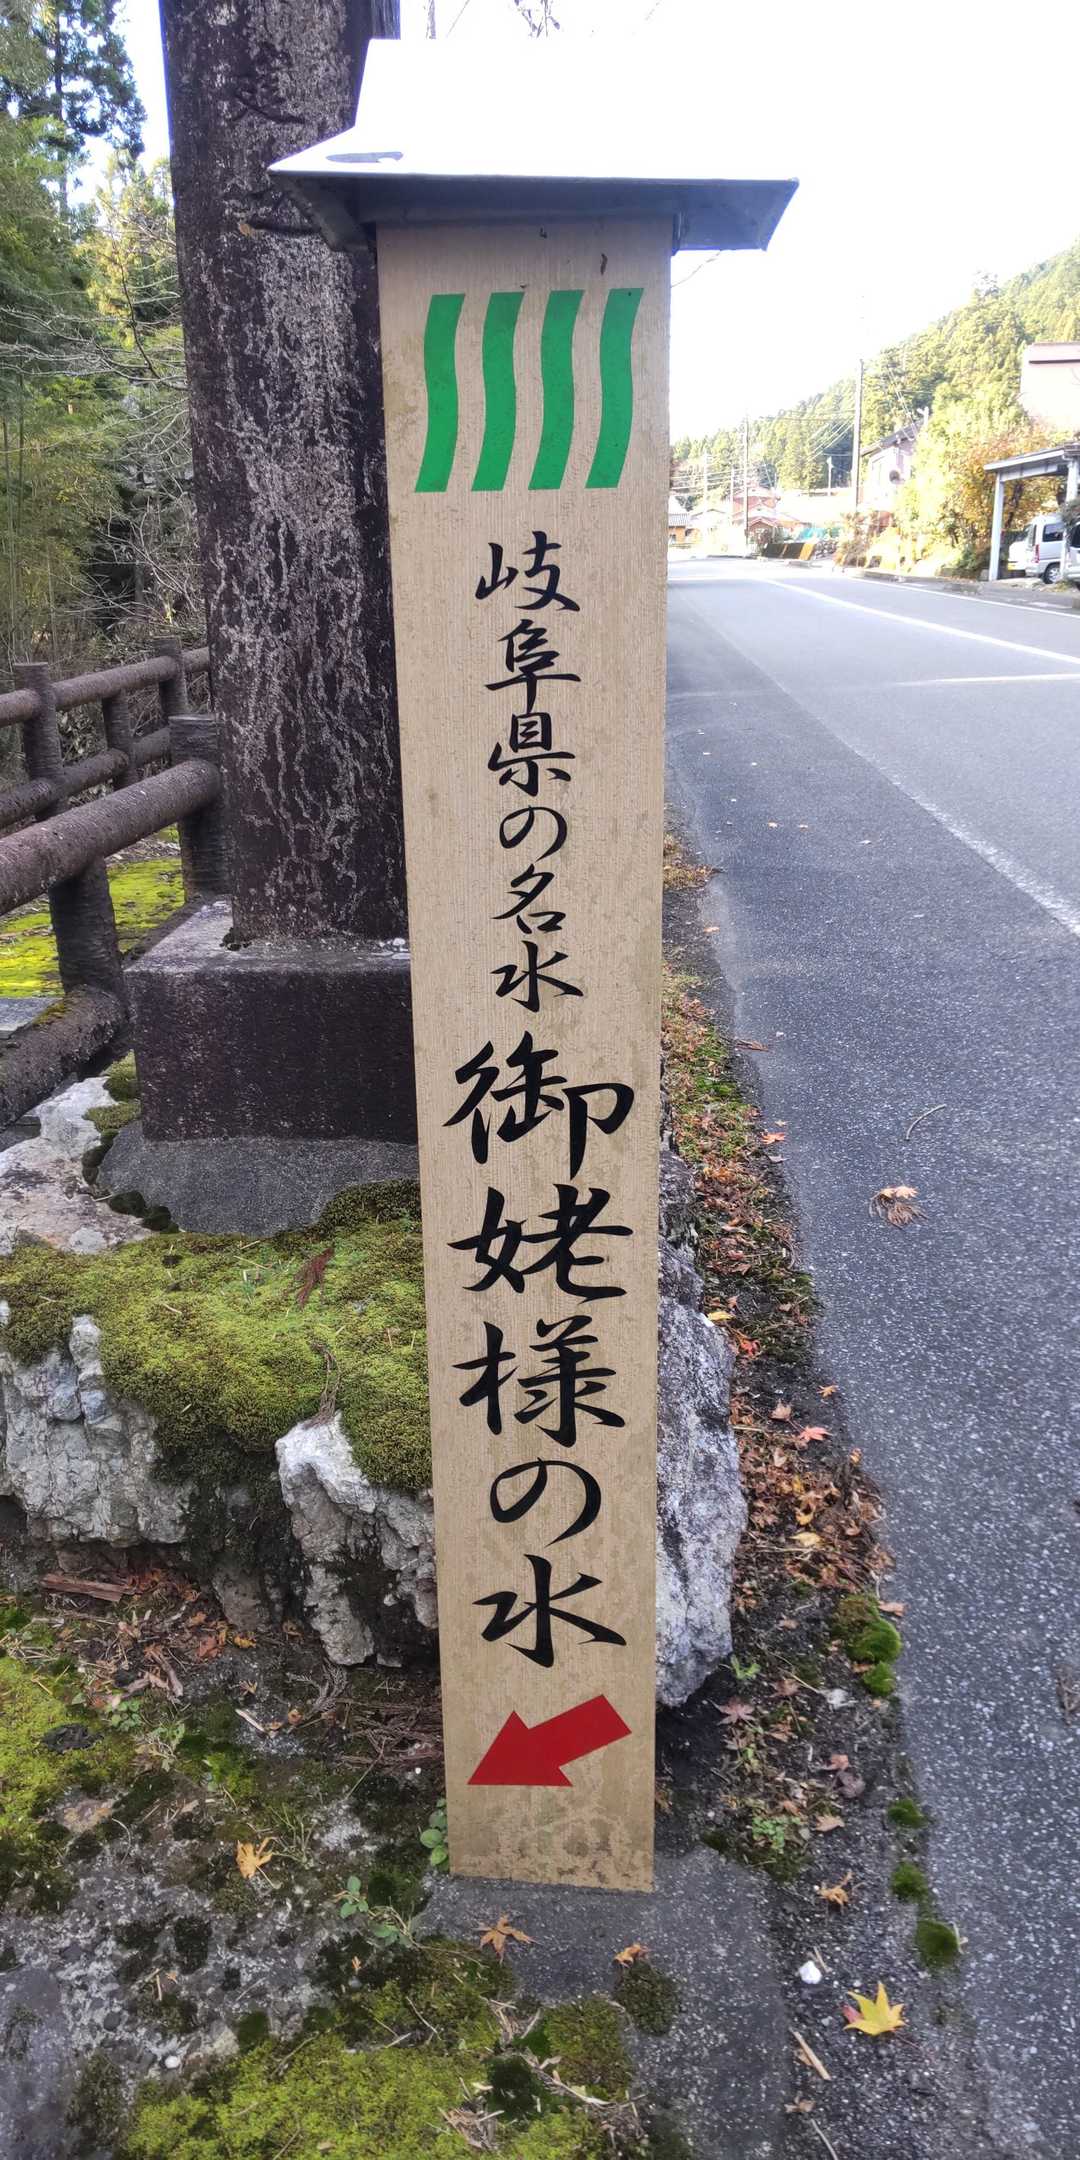 岐阜県の名水
御姥様の水